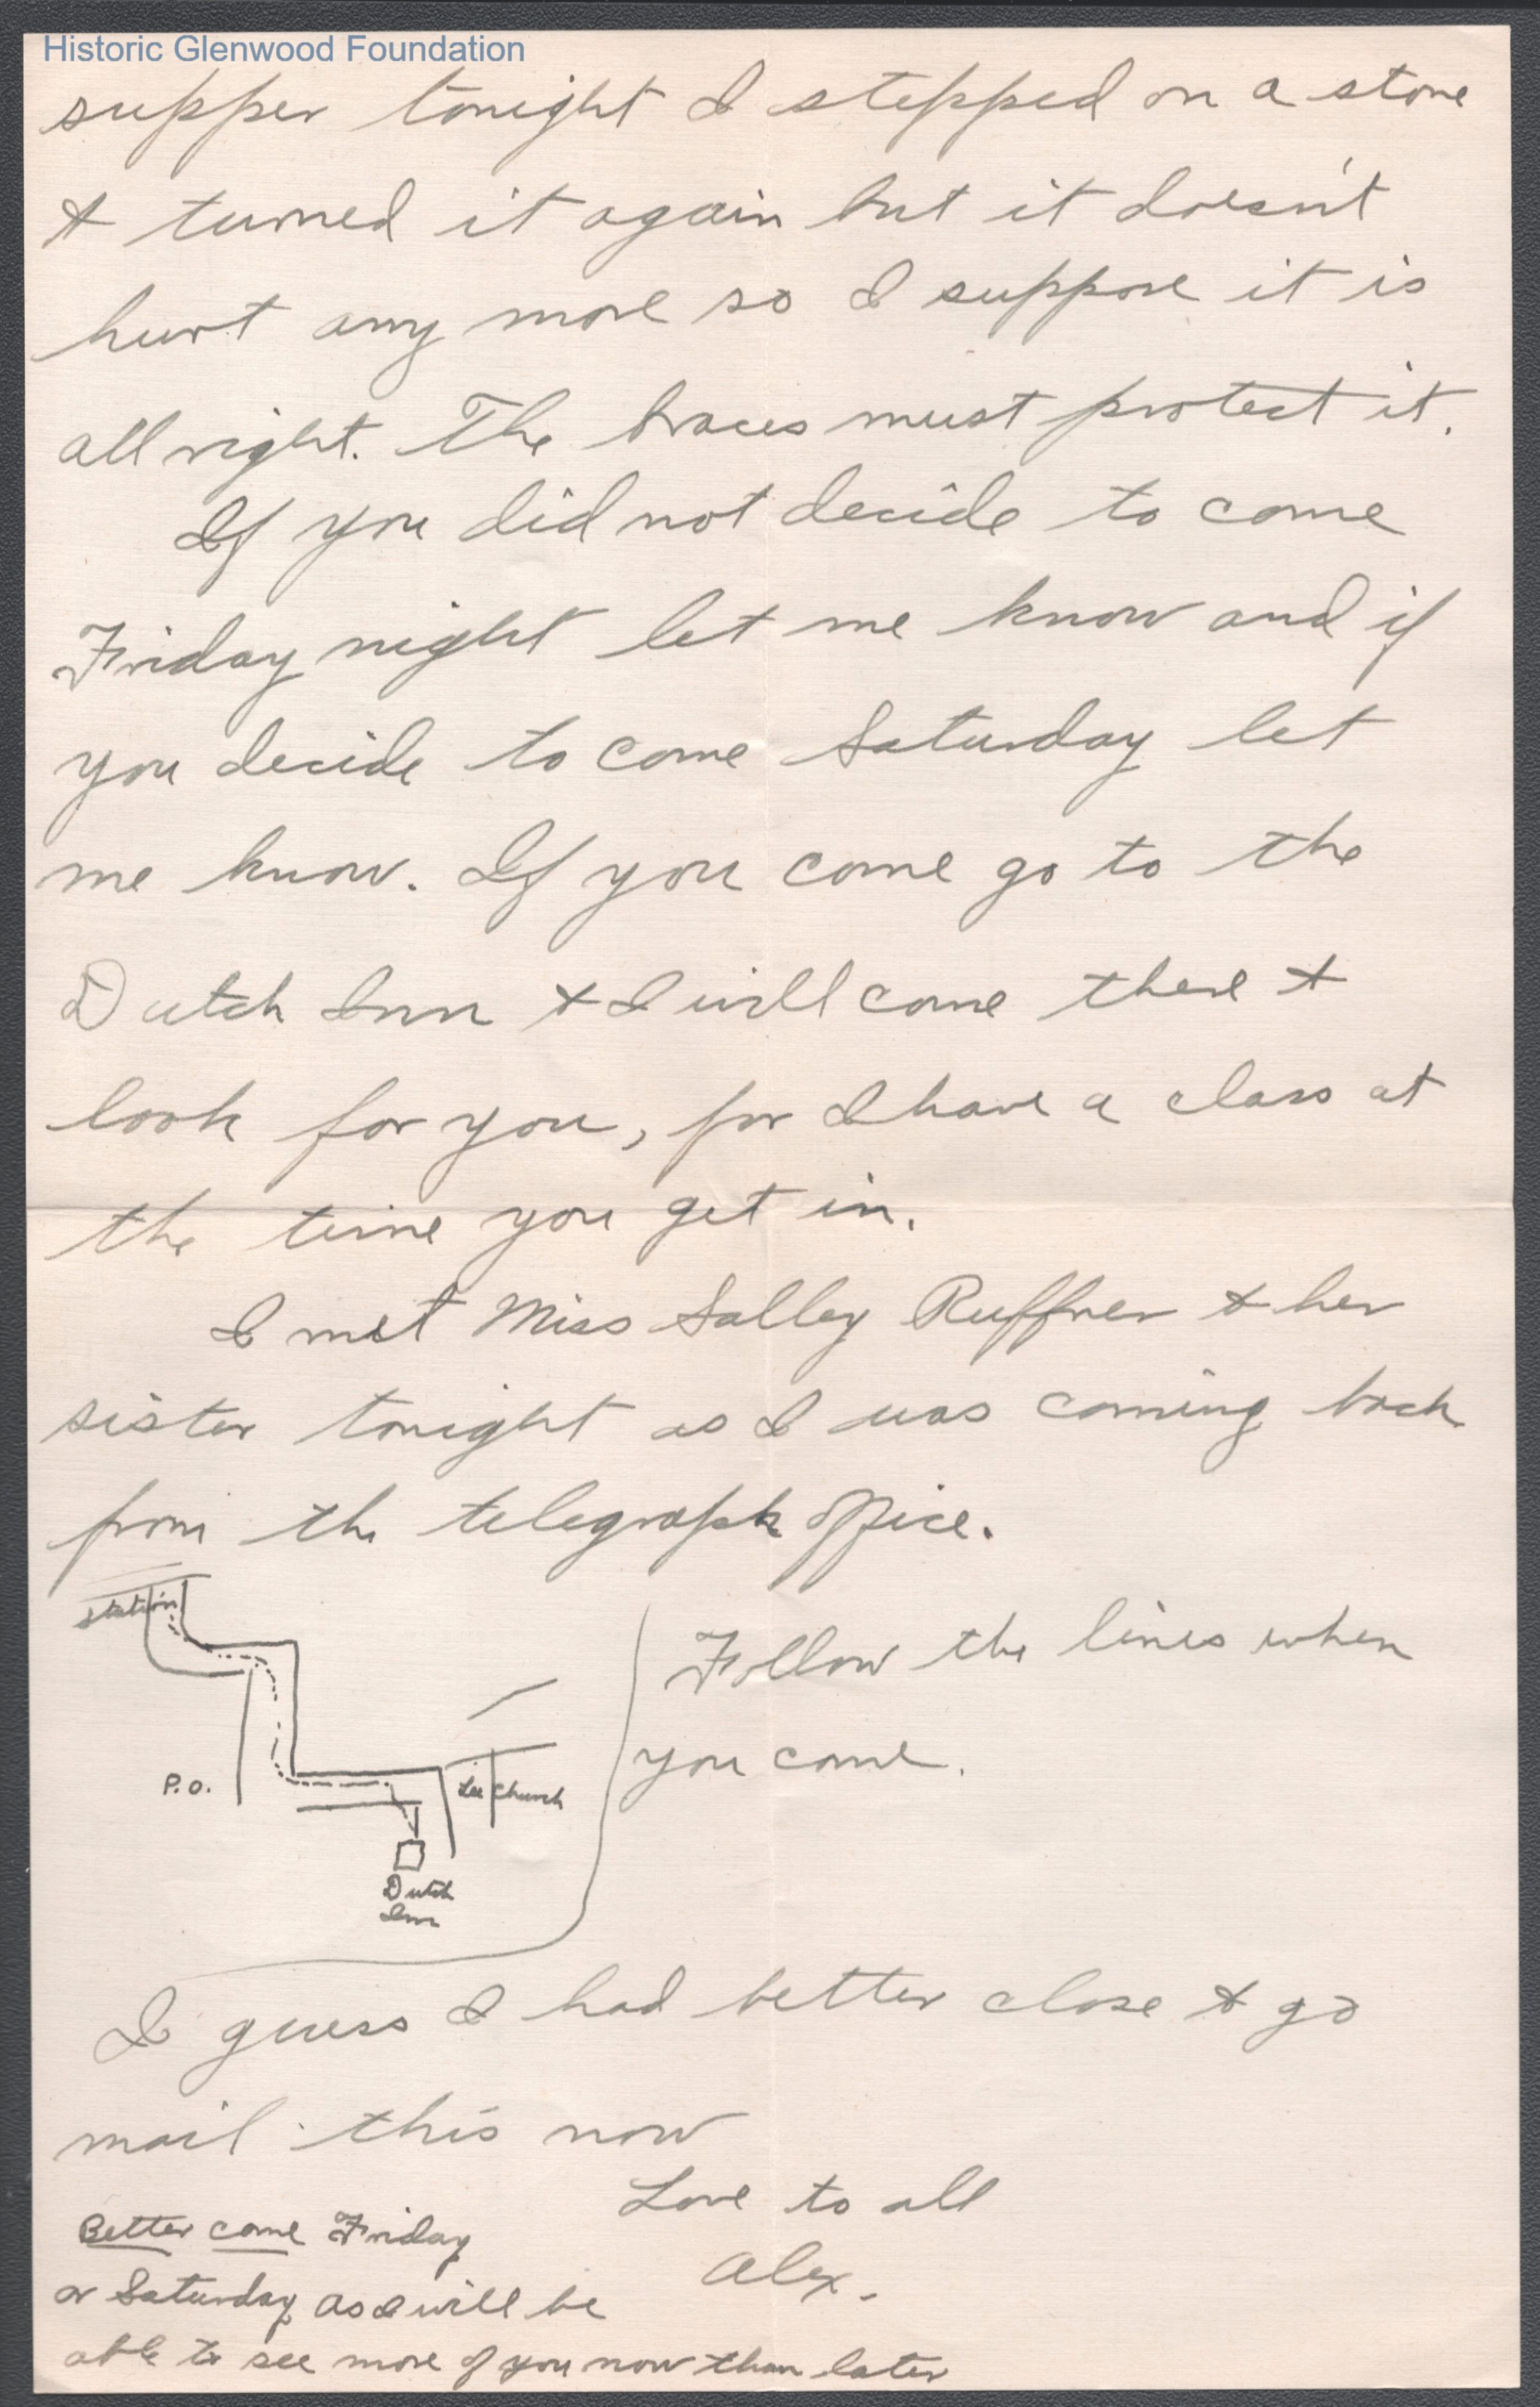 Historic Glenwood Foundation
supper tonight I stepped on a stone
& turned it again but it doesn't
hurt any more so I suppose it is
all right. The braces must protect it.
If you did not decide to come
Friday night let me know and if
you decide to come Saturday let
me know. If you come go to the
Dutch Inn & I will come there &
look for you, for I have a class at
the time you get in.
I met Miss Salley Ruffner & her
sister tonight as I was coming back
from the telegraph office.
station
P.O.
Lee Church
Dutch
Inn
Follow the lines when
you come.
I guess I had better close & go
mail this now
Love to all
Alex.
Better come Friday
or Saturday as I will be
able to see more of you now than later